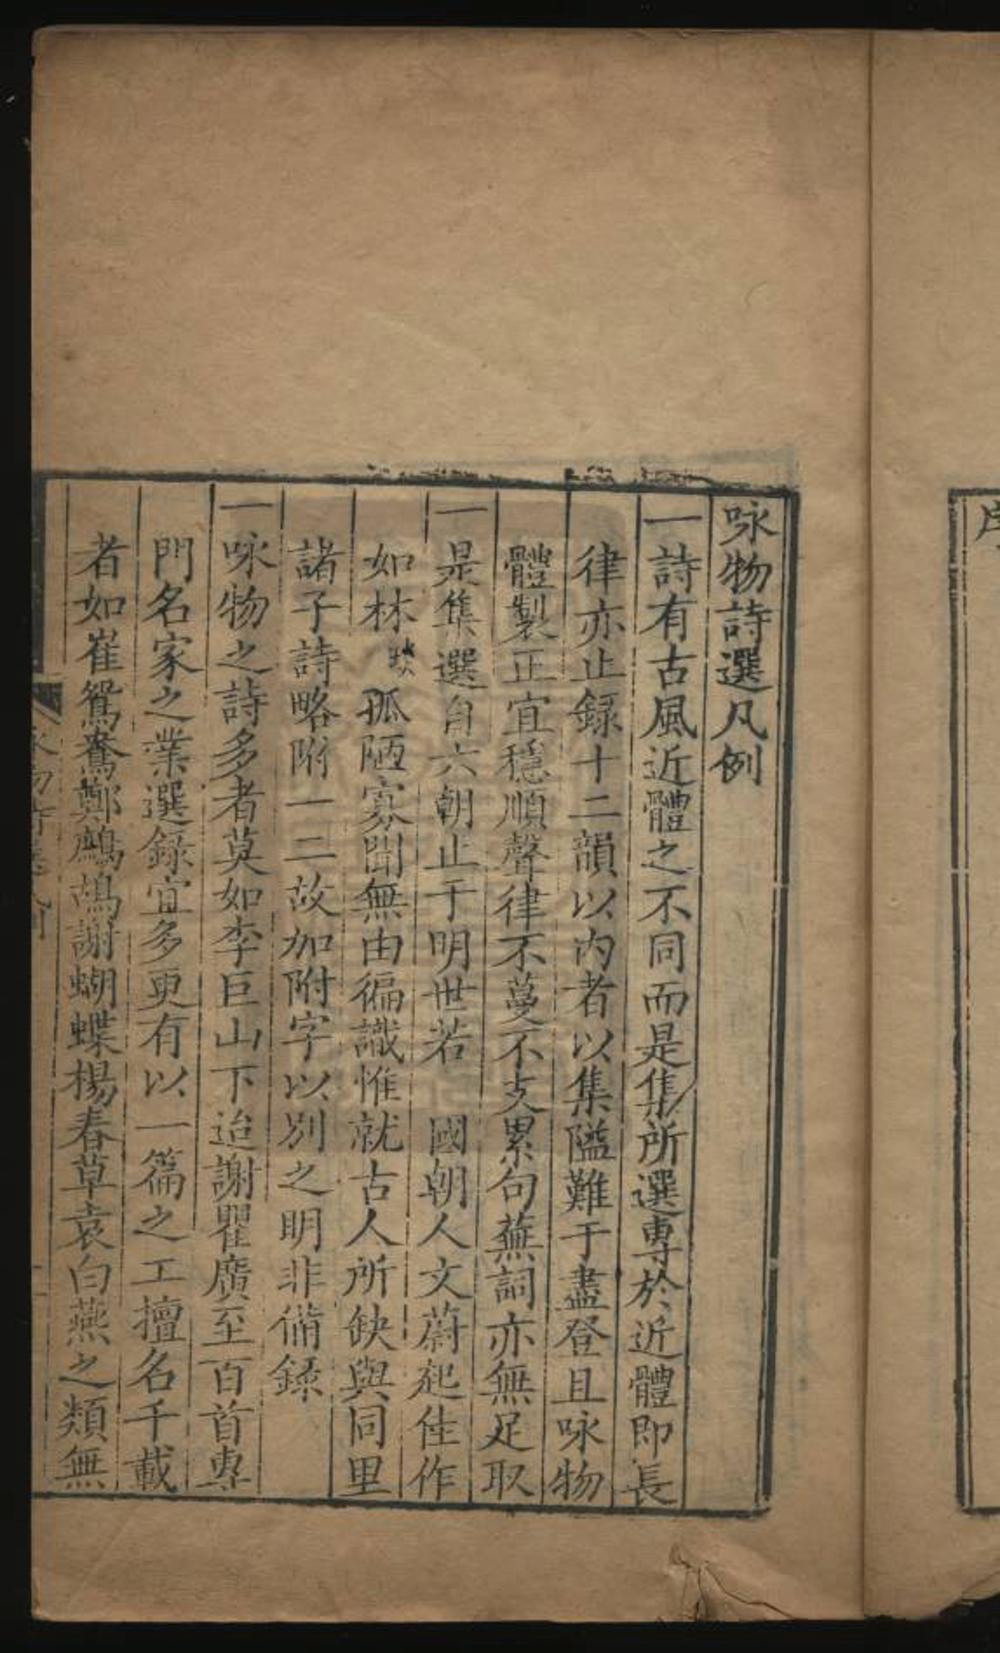 咏物詩選凡例
一詩有古風近體之不同而是集所選專於近體即長
律亦止録十二韻以内者以集隘難于盡登且咏物
體製正宜穩順聲律不蔓不支累句蕪詞亦無足取
一是集選自六朝止于明世若　國朝人文蔚起佳作
如林琰孤陋寡聞無由徧識惟就古人所缺與同里
諸子詩略附一二故加附字以別之明非備録
一咏物之詩多者莫如李巨山下迨謝瞿廣至百首專
門名家之業選録宜多更有以一篇之工擅名千載
者如崔鴛鴦鄭鷓鴣謝蝴蝶楊春草袁白燕之類無